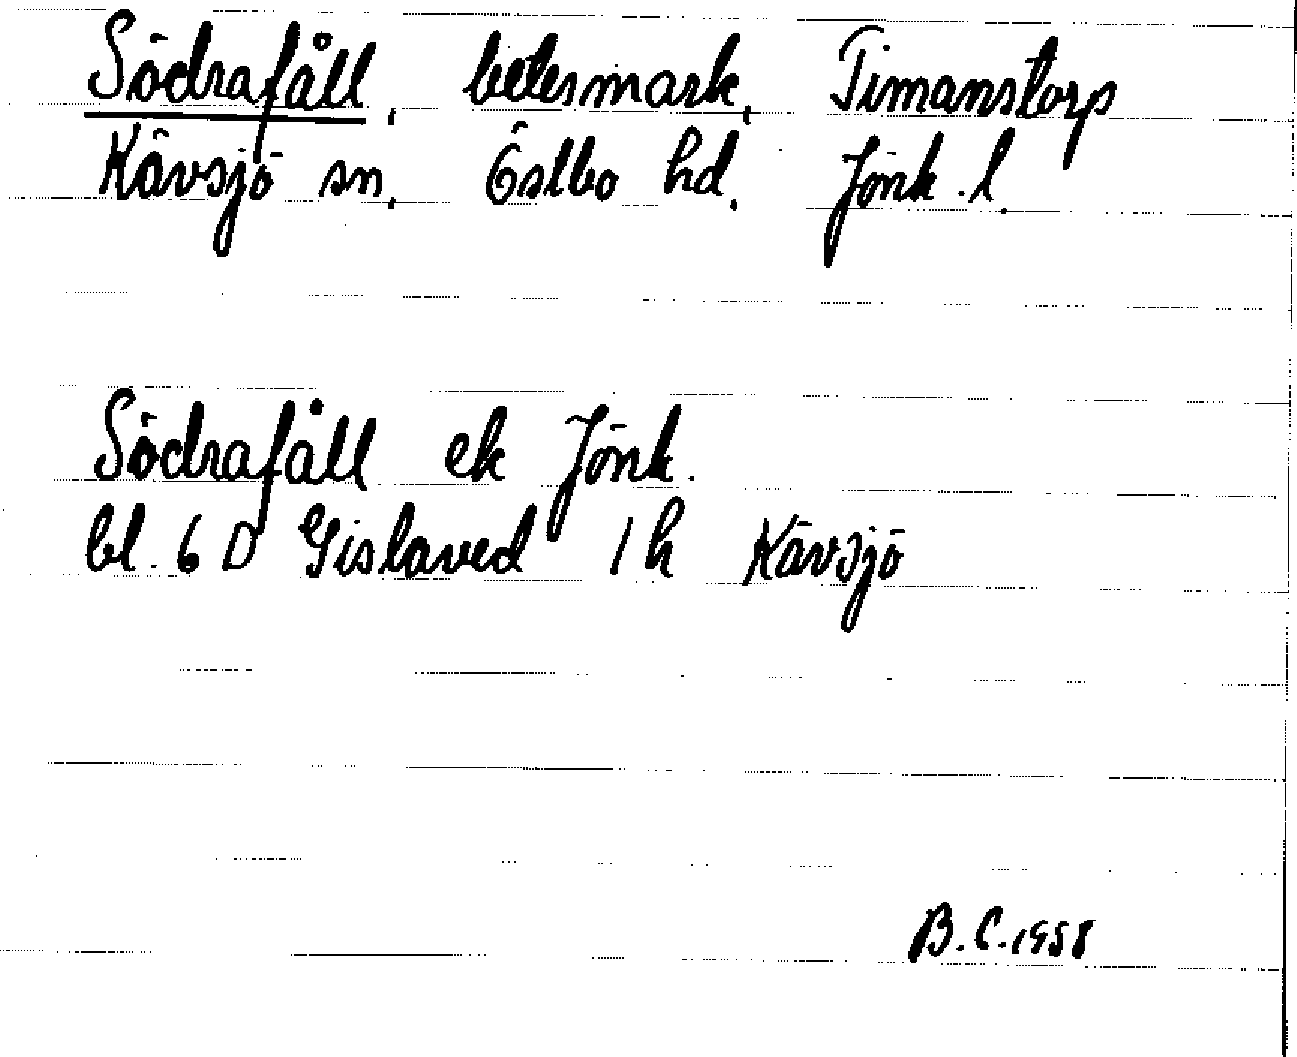 Södrafåll, betesmark, Timanstorp
Kävsjö sn, Östbo hd, Jönk. l.
Södrafåll ek Jönk.
bl. 6 D Gislaved 1 h Kävsjö
B.C. 1958